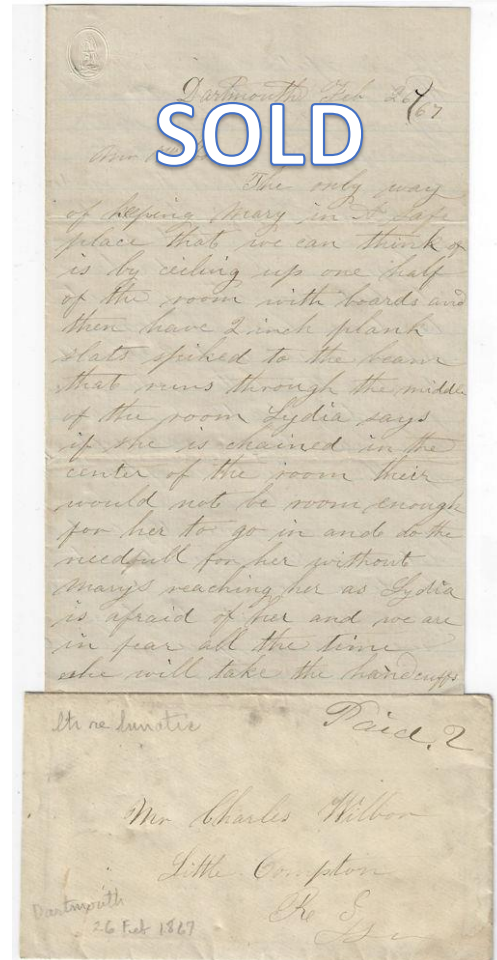 Dartmouth Feb 26/67
SOLD
The only way
of keping Mary in A safe
place that we can think of
is by ceiling up one half
of the room with boards and
then have 2 inch plank
slats spiked to the beam
that runs through the middle
of the room Lydia says
if she is chained in the
center of the room their
would not be room enough
for her to go in and do the
needfull for her without
Marys reaching her as Lydia
is afraid of her and we are
in fear all the time
she will take the handcuffs
ltr re lunatic
Paid. 2
Mr Charles Wilbor
Little Compton
R I
Dartmouth
26 Feb 1867